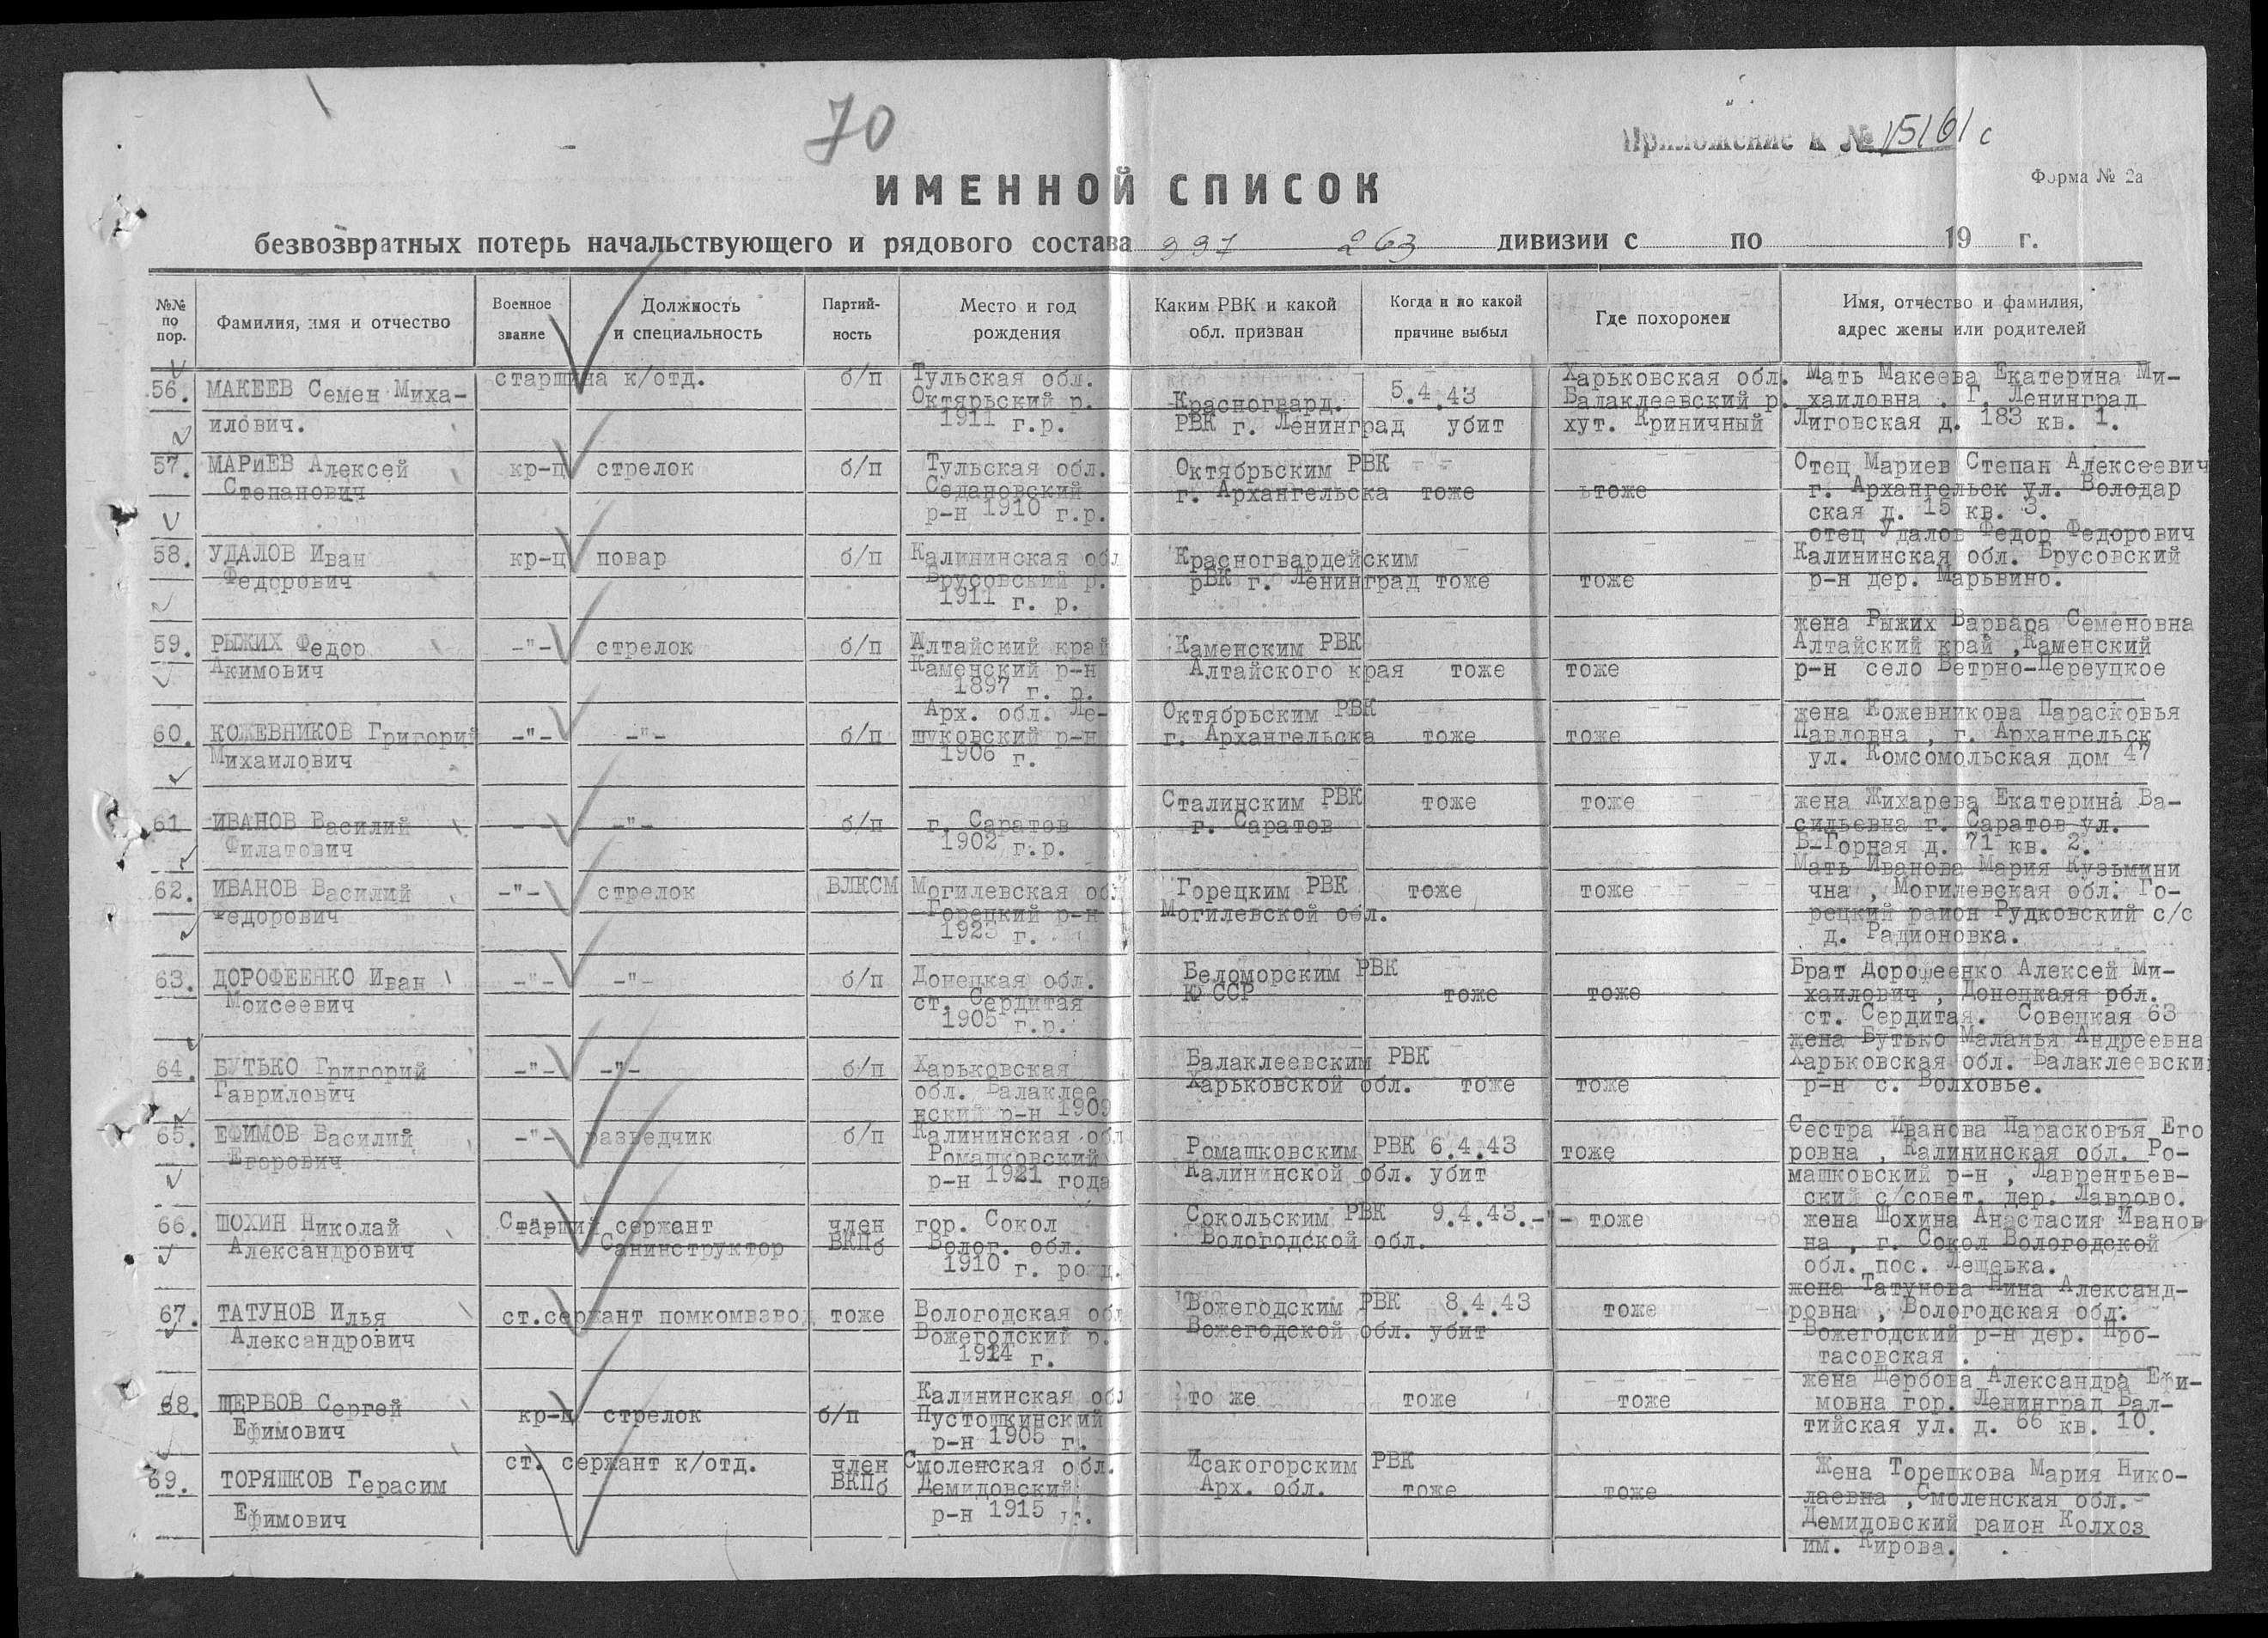 70
Приложение к № 15161 с
Форма № 2а
ИМЕННОЙ СПИСОК
безвозвратных потерь начальствующего и рядового состава 997 263 дивизии с по 19 г.
№№ по пор. Фамилия, имя и отчество Военное звание Должность и специальность Партийность Место и год рождения Каким РВК и какой обл. призван Когда и по какой причине выбыл Где похоронен Имя, отчество и фамилия, адрес жены или родителей
56. МАКЕЕВ Семен Миха- старшина к/отд. б/п Тульская обл. Красногвард. 5.4.43 Харьковская обл. Мать Макеева Екатерина Ми-
илович. Октярьский р. РВК г. Ленинград убит Балаклеевский р. хаиловна . Г. Ленинград
1911 г.р. хут. Криничный Лиговская д. 183 кв. 1.
57. МАРиЕВ Алексей кр-ц стрелок б/п Тульская обл. Октябрьским РВК Отец Мариев Степан Алексеевич
Степанович Седановский г. Архангельска тоже тоже г. Архангельск ул. Володар
р-н 1910 г.р. ская д. 15 кв. 3.
58. УДАЛОВ Иван кр-ц повар б/п Калининская обл Красногвардейским отец Удалов Федор Федорович
Федорович Брусовский р. рВК г. Ленинград тоже тоже Калининская обл. Брусовский
1911 г. р. р-н дер. Марьвино.
59. РЫЖИХ Федор -"- стрелок б/п Алтайский край Каменским РВК жена Рыжих Варвара Семеновна
Акимович Каменский р-н Алтайского края тоже тоже Алтайский край ,Каменский
1897 г. р. р-н село Ветрно-Переуцкое
60. КОЖЕВНИКОВ Григорий -"- -"- б/п Арх. обл. Ле- Октябрьским РВК жена Кожевникова Парасковья
Михаилович шуковский р-н г. Архангельска тоже тоже Павловна , г. Архангельск
1906 г. ул. Комсомольская дом 47
61 ИВАНОВ Василий - - -"- б/п г. Саратов Сталинским РВК тоже тоже жена Жихарева Екатерина Ва-
Филатович 1902 г.р. г. Саратов сильевна г. Саратов ул.
Б-Горная д. 71 кв. 2.
62. ИВАНОВ Василий -"- стрелок ВЛКСМ Могилевская обл Горецким РВК тоже тоже Мать Иванова Мария Кузьмини
Федорович Горецкий р-н Могилевской обл. чна , Могилевская обл. Го-
1923 г. рецкий район Рудковский с/с
д. Радионовка.
63. ДОРОФЕЕНКО Иван -"- -"- б/п Донецкая обл. Беломорским РВК Брат Дорофеенко Алексей Ми-
Моисеевич ст. Сердитая КФССР тоже тоже хаилович , Донецкаяя рбл.
1905 г.р. ст. Сердитая. Совецкая 63
64. БУТЬКО Григорий -"- -"- б/п Харьковская Балаклеевским РВК жена Бутько Маланья Андреевна
Гаврилович обл. Балаклее Харьковской обл. тоже тоже Харьковская обл. Балаклеевский
вский р-н 1909 р-н с. Волховье.
65. ЕФИМОВ Василий -"- разведчик б/п Калининская обл Ромашковским РВК 6.4.43 тоже Сестра Иванова Парасковья Его
Егорович Ромашковский Калининской обл. убит ровна , Калининская обл. Ро-
р-н 1921 года машковский р-н , Лаврентьев-
ский с/совет. дер. Лаврово.
66. ШОХИН Николай Старший сержант член гор. Сокол Сокольским РВК 9.4.43.-"- тоже жена Шохина Анастасия Иванов
Александрович Санинструктор ВКПб Волог. обл. Вологодской обл. на , г. Сокол Вологодской
1910 г. рожд. обл. пос. Лещевка.
67. ТАТУНОВ Илья ст.сержант помкомвзвод тоже Вологодская обл Вожегодским РВК 8.4.43 тоже жена Татунова Нина Александ-
Александрович Вожегодский р. Вожегодской обл. убит ровна , Вологодская обл.
1914 г. Вожегодский р-н дер. Про-
тасовская .
68. ЩЕРБОВ Сергей кр-ц стрелок б/п Калининская обл то же тоже тоже жена Щербова Александра Ефи-
Ефимович Пустошкинский мовна гор. Ленинград Бал-
р-н 1905 г. тийская ул. д. 66 кв. 10.
69. ТОРЯШКОВ Герасим ст. сержант к/отд. член Смоленская обл. Исакогорским РВК Жена Торешкова Мария Нико-
Ефимович ВКПб Демидовский Арх. обл. тоже тоже лаевна ,Смоленская обл.
р-н 1915 г. Демидовский раион Колхоз
им. Кирова.